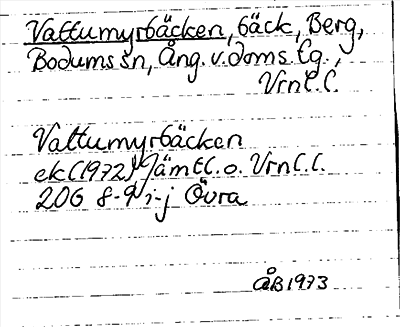 Vattumyrbäcken, bäck, Berg,
Bodums sn, Ång. v. doms. tg.,
Vrnl. l.
Vattumyrbäcken
ek (1972) Jämtl. o. Vrnl. l.
20G 8-9 i-j Övra
ÅB 1973